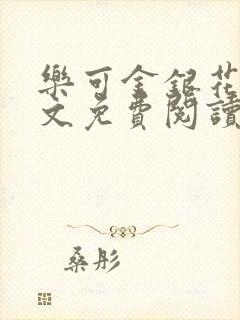 樂可金銀花
文免費閱讀
桑彤